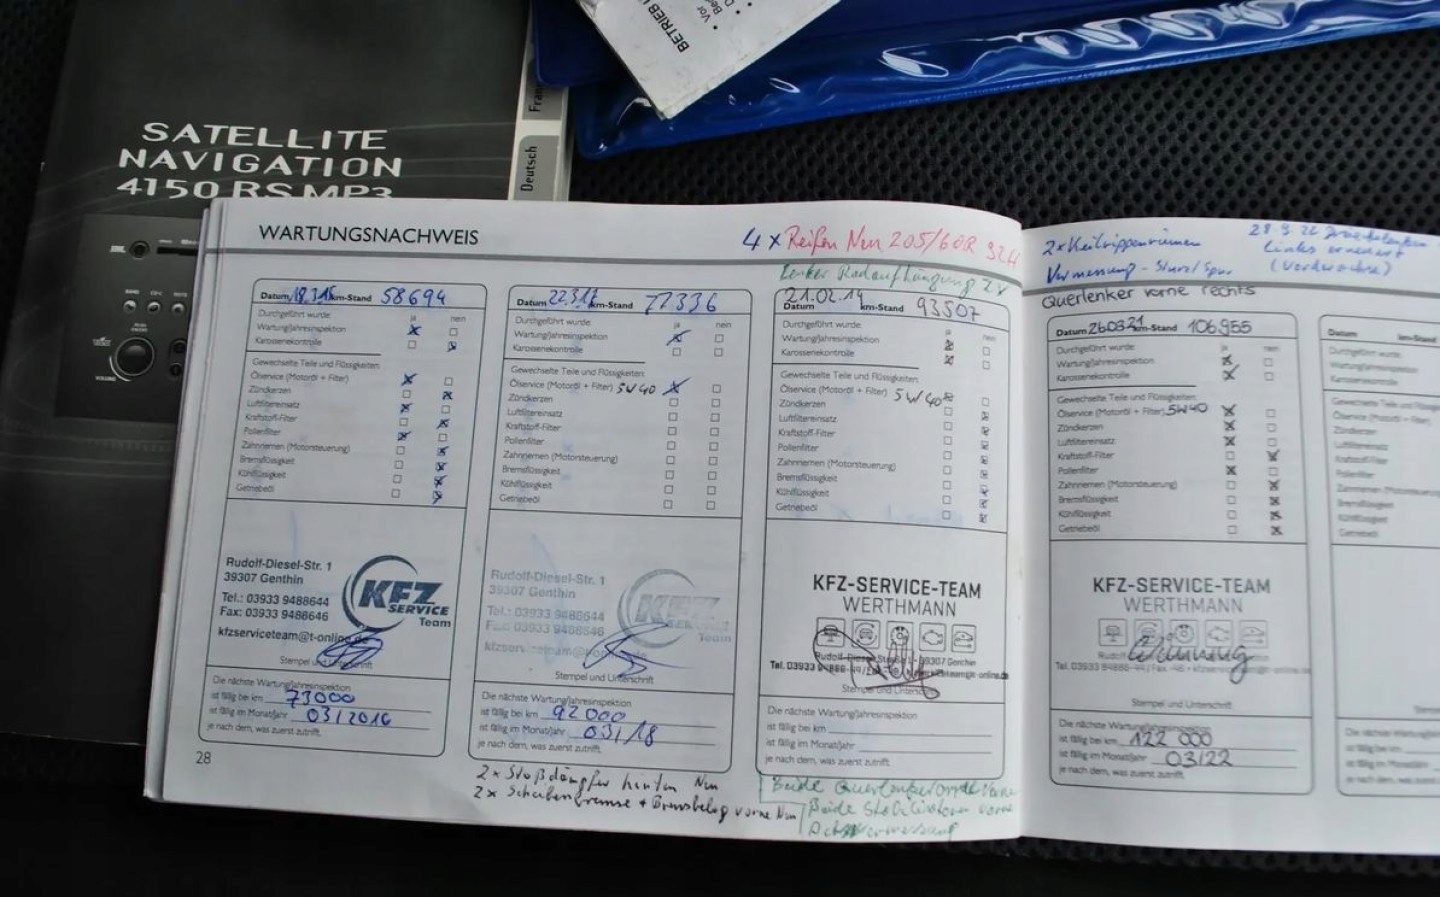 BETRIEB
SATELLITE
NAVIGATION
4150 RS MP3
Deutsch
WARTUNGSNACHWEIS
4 x Reifen Neu 205/60R 92H
Datum 18.3.15 km-Stand 58694
Durchgeführt wurde:
ja nein
Wartung/Jahresinspektion
Karosseriekontrolle
Gewechselte Teile und Flüssigkeiten:
Ölservice (Motoröl + Filter)
Zündkerzen
Luftfiltereinsatz
Kraftstoff-Filter
Pollenfilter
Zahnriemen (Motorsteuerung)
Bremsflüssigkeit
Kühlflüssigkeit
Getriebeöl
Rudolf-Diesel-Str. 1
39307 Genthin
Tel.: 03933 9488644
Fax: 03933 9488646
kfzserviceteam@t-online.de
KFZ
SERVICE
Team
Stempel und Unterschrift
Die nächste Wartung/Jahresinspektion
ist fällig bei km 73000
ist fällig im Monat/Jahr 03/2016
je nach dem, was zuerst zutrifft.
28
Datum 22.3.17 km-Stand 77336
Durchgeführt wurde:
ja nein
Wartung/Jahresinspektion
Karosseriekontrolle
Gewechselte Teile und Flüssigkeiten:
Ölservice (Motoröl + Filter) 5W40
Zündkerzen
Luftfiltereinsatz
Kraftstoff-Filter
Pollenfilter
Zahnriemen (Motorsteuerung)
Bremsflüssigkeit
Kühlflüssigkeit
Getriebeöl
Rudolf-Diesel-Str. 1
39307 Genthin
Tel.: 03933 9488644
Fax: 03933 9488646
KFZ
SERVICE
Team
Stempel und Unterschrift
Die nächste Wartung/Jahresinspektion
ist fällig bei km 92000
ist fällig im Monat/Jahr 03/18
je nach dem, was zuerst zutrifft.
2 x Stoßdämpfer hinten Neu
2 x Scheibenbremse + Bremsbelag vorne Neu
Radaufhängung
21.02.19
Datum km-Stand 93507
Durchgeführt wurde:
ja nein
Wartung/Jahresinspektion
Karosseriekontrolle
Gewechselte Teile und Flüssigkeiten:
Ölservice (Motoröl + Filter) 5W40
Zündkerzen
Luftfiltereinsatz
Kraftstoff-Filter
Pollenfilter
Zahnriemen (Motorsteuerung)
Bremsflüssigkeit
Kühlflüssigkeit
Getriebeöl
KFZ-SERVICE-TEAM
WERTHMANN
Stempel und Unterschrift
Die nächste Wartung/Jahresinspektion
ist fällig bei km
ist fällig im Monat/Jahr
je nach dem, was zuerst zutrifft.
Beide Querlenker vorne
Beide Stabilisatoren vorne
2 x Keilrippenriemen
Vermessung - Sturz/Spur
Querlenker vorne rechts
links erneuert
(Vorderachse)
Datum 260321 km-Stand 106955
Durchgeführt wurde:
ja nein
Wartung/Jahresinspektion
Karosseriekontrolle
Gewechselte Teile und Flüssigkeiten:
Ölservice (Motoröl + Filter) 5W40
Zündkerzen
Luftfiltereinsatz
Kraftstoff-Filter
Pollenfilter
Zahnriemen (Motorsteuerung)
Bremsflüssigkeit
Kühlflüssigkeit
Getriebeöl
KFZ-SERVICE-TEAM
WERTHMANN
Stempel und Unterschrift
Die nächste Wartung/Jahresinspektion
ist fällig bei km 122 000
ist fällig im Monat/Jahr 03/22
je nach dem, was zuerst zutrifft.
Datum km-Stand